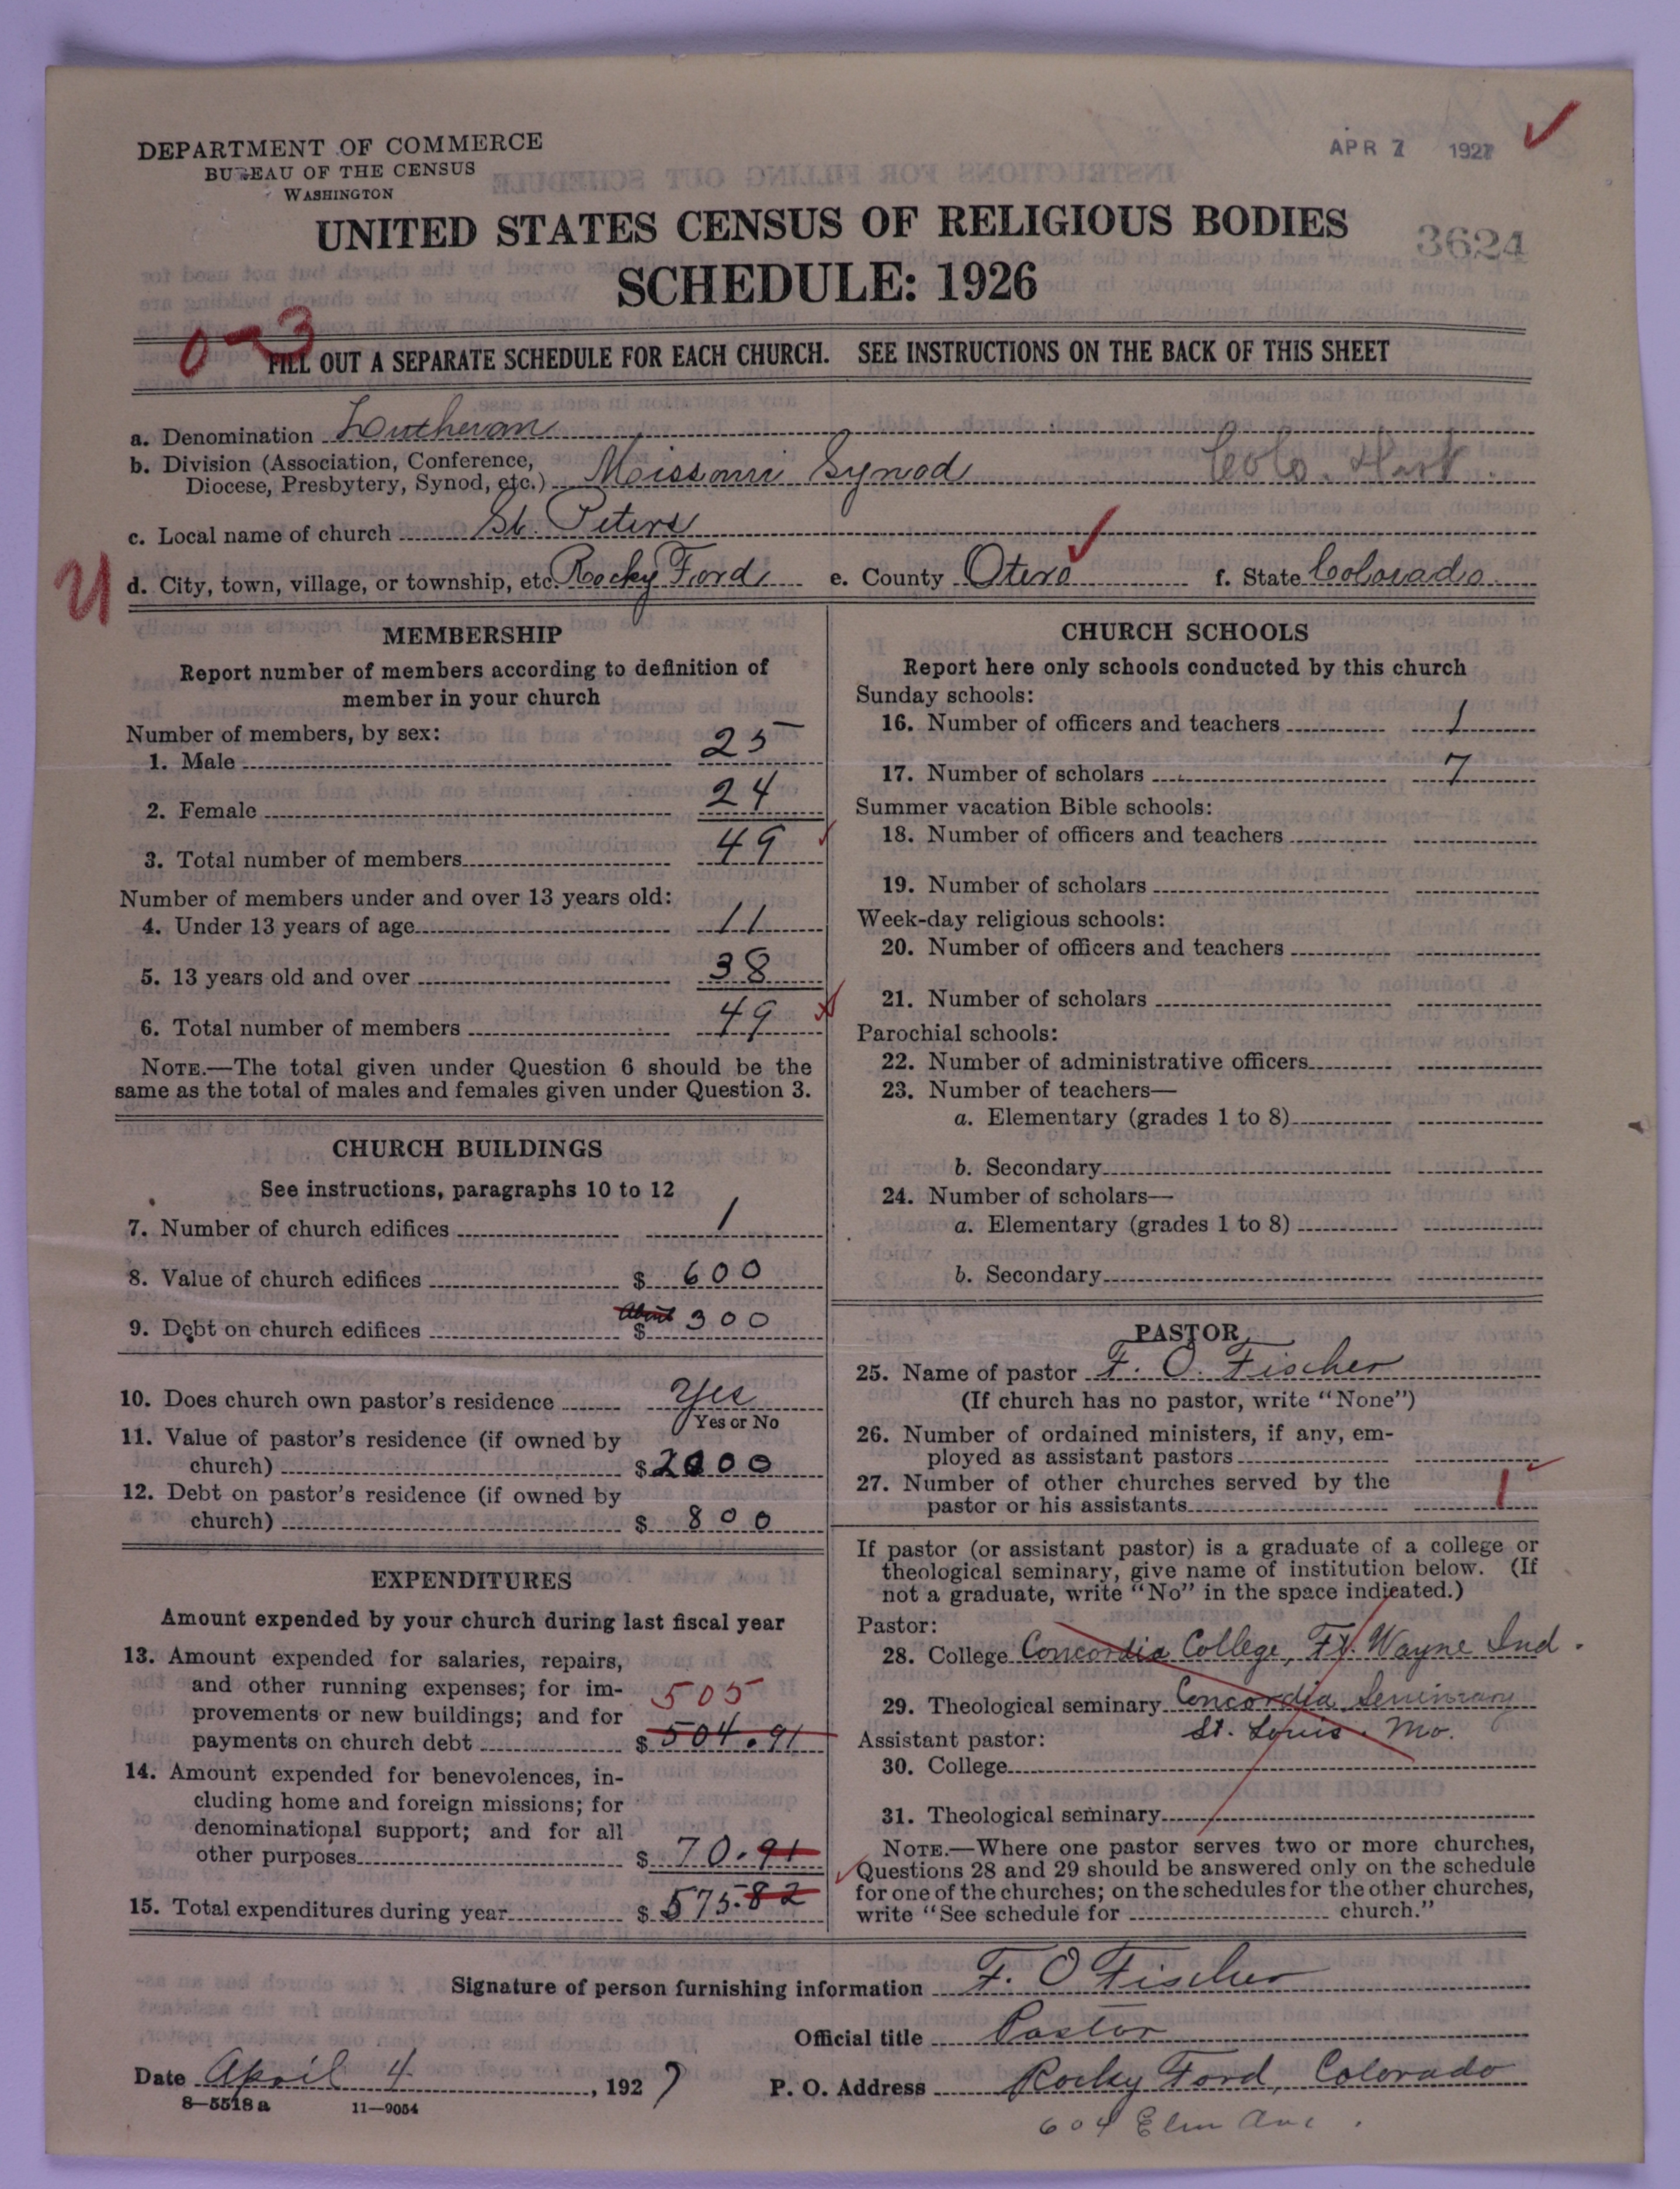 DEPARTMENT OF COMMERCE
BUREAU OF THE CENSUS
WASHINGTON
APR 7 1927
UNITED STATES CENSUS OF RELIGIOUS BODIES
3624
SCHEDULE: 1926
0-3
FILL OUT A SEPARATE SCHEDULE FOR EACH CHURCH. SEE INSTRUCTIONS ON THE BACK OF THIS SHEET
a. Denomination Lutheran
b. Division (Association, Conference,
Diocese, Presbytery, Synod, etc.) Missouri Synod Colo. Dist.
c. Local name of church St. Peters
d. City, town, village, or township, etc. Rocky Ford e. County Otero f. State Colorado
MEMBERSHIP
Report number of members according to definition of
member in your church
Number of members, by sex:
1. Male 25
2. Female 24
3. Total number of members 49
Number of members under and over 13 years old:
4. Under 13 years of age 11
5. 13 years old and over 38
6. Total number of members 49
NOTE.—The total given under Question 6 should be the
same as the total of males and females given under Question 3.
CHURCH BUILDINGS
See instructions, paragraphs 10 to 12
7. Number of church edifices 1
8. Value of church edifices $ 600
9. Debt on church edifices About $ 300
10. Does church own pastor's residence Yes
Yes or No
11. Value of pastor's residence (if owned by
church) $ 2000
12. Debt on pastor's residence (if owned by
church) $ 800
EXPENDITURES
Amount expended by your church during last fiscal year
13. Amount expended for salaries, repairs,
and other running expenses; for im-
provements or new buildings; and for 505
payments on church debt $ 504.91
14. Amount expended for benevolences, in-
cluding home and foreign missions; for
denominational support; and for all
other purposes $ 70.91
15. Total expenditures during year $ 575.82
CHURCH SCHOOLS
Report here only schools conducted by this church
Sunday schools:
16. Number of officers and teachers 1
17. Number of scholars 7
Summer vacation Bible schools:
18. Number of officers and teachers
19. Number of scholars
Week-day religious schools:
20. Number of officers and teachers
21. Number of scholars
Parochial schools:
22. Number of administrative officers
23. Number of teachers—
a. Elementary (grades 1 to 8)
b. Secondary
24. Number of scholars—
a. Elementary (grades 1 to 8)
b. Secondary
PASTOR
25. Name of pastor F. O. Fischer
(If church has no pastor, write "None")
26. Number of ordained ministers, if any, em-
ployed as assistant pastors
27. Number of other churches served by the
pastor or his assistants 1
If pastor (or assistant pastor) is a graduate of a college or
theological seminary, give name of institution below. (If
not a graduate, write "No" in the space indicated.)
Pastor:
28. College Concordia College, Ft. Wayne Ind.
29. Theological seminary Concordia Seminary
Assistant pastor: St. Louis, Mo.
30. College
31. Theological seminary
NOTE.—Where one pastor serves two or more churches,
Questions 28 and 29 should be answered only on the schedule
for one of the churches; on the schedules for the other churches,
write "See schedule for church."
Signature of person furnishing information F. O Fischer
Official title Pastor
Date April 4, 1927 P. O. Address Rocky Ford, Colorado
8—5518 a 11—9054
604 Elm Ave.